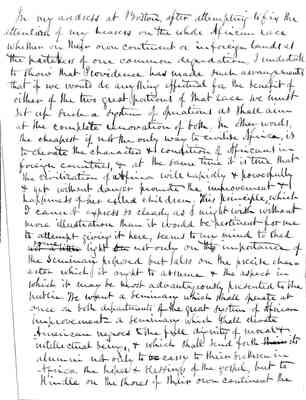 In my address at Boston, after attempting to fix the
attention of my hearers on the whole African race
whether on their own continent or in foreign lands as
the partakers of one common degradation, I undertook
to show that Providence has made such arrangements
that if we would do anything effectual for the benefit of
either of the two great portions of that race we must
set up such a system of operations as shall aim
at the complete renovation of both. In other words,
the cheapest if not the only way to civilize Africa, is
to elevate the character & condition of Africans in
foreign countries, & at the same time it is true that
the civilization of Africa will rapidly & powerfully
& yet without danger promote the improvement &
happiness of her exiled children. This principle, which
I cannot express so clearly as I might wish without
more illustration than it would be pertinent for me
to attempt giving it here, seems to my mind to shed
light not only on the importance of
the Seminary proposed but also on the precise char-
acter which it ought to assume & the aspect in
which it may be most advantageously presented to the
public. We want a seminary which shall operate at
once on both departments of the great system of African
improvement - a seminary which shall elevate
American negroes to the full dignity of moral &
intellectual beings, & which shall send forth its
alumni not only to carry to their brethren in
Africa the hopes & blessings of the gospel, but to
kindle on the shores of their own continent the